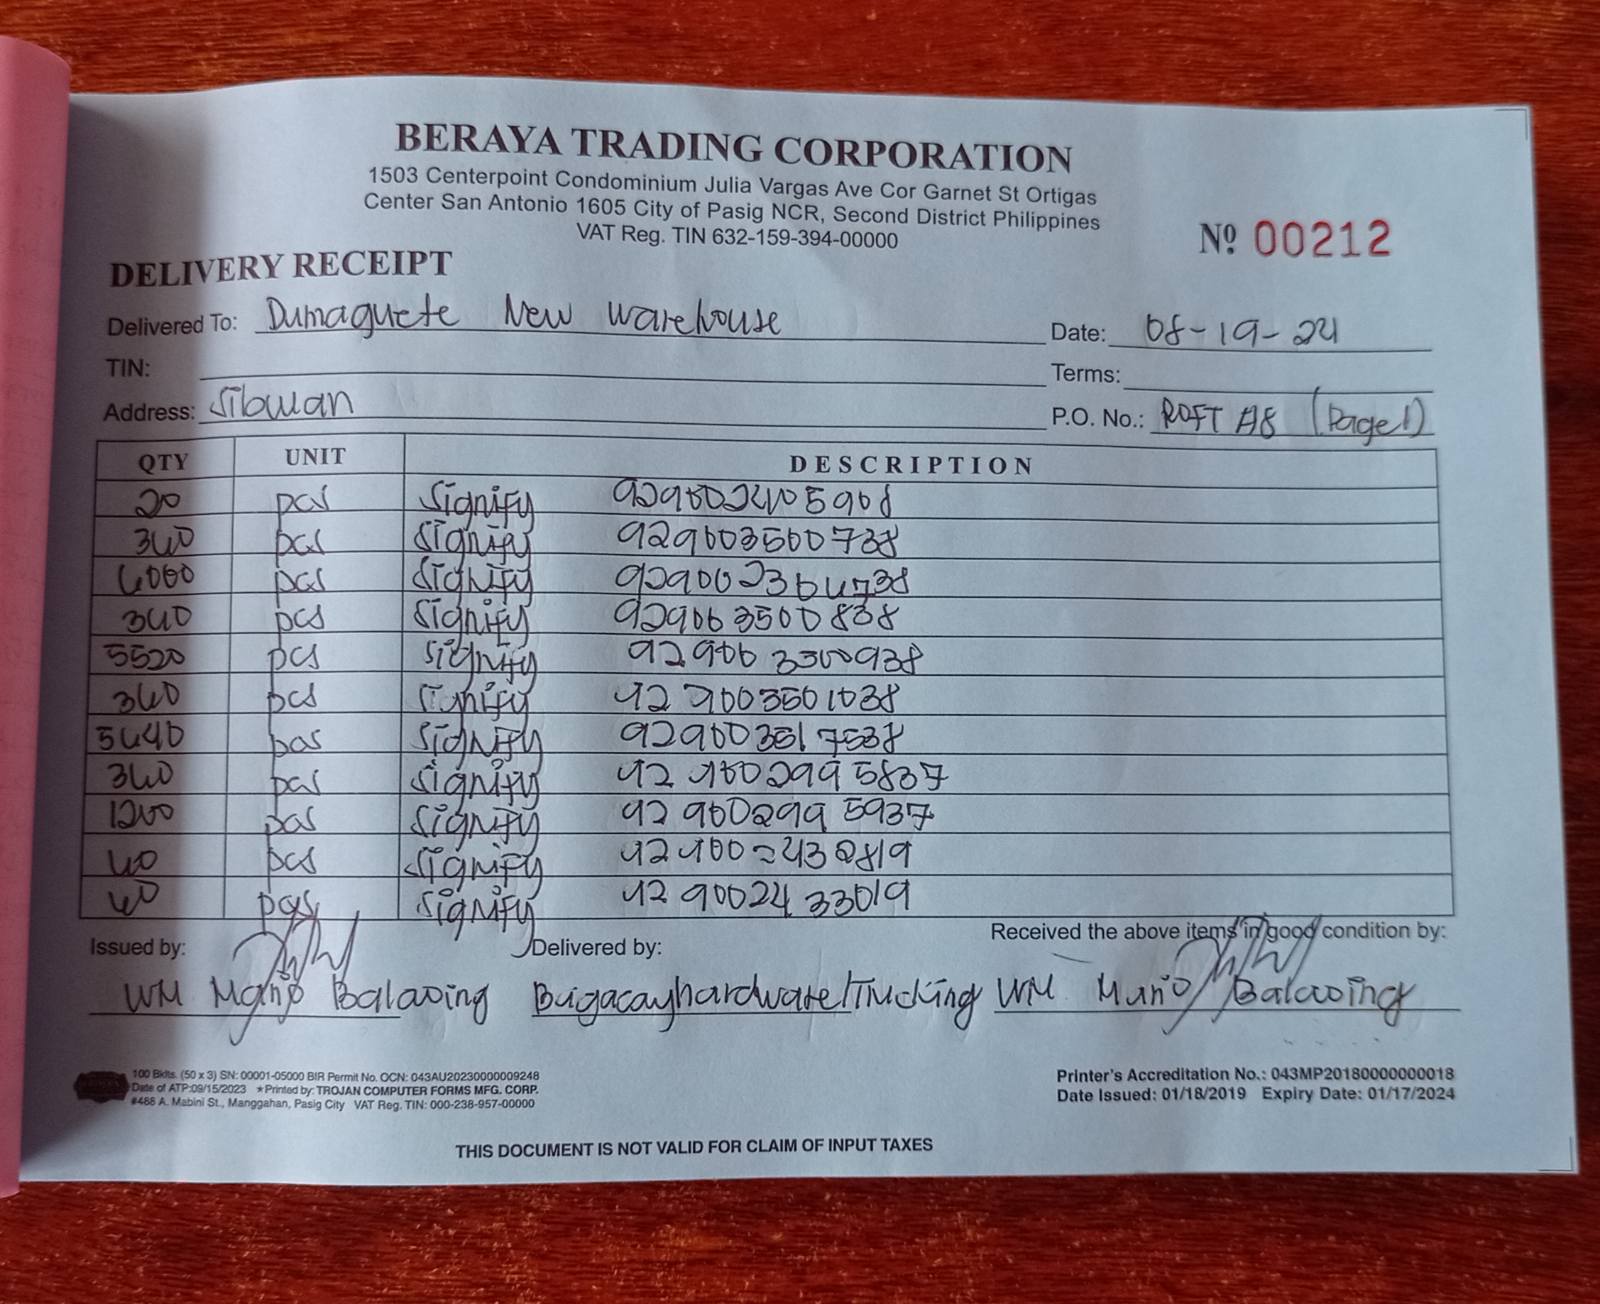 BERAYA TRADING CORPORATION
1503 Centerpoint Condominium Julia Vargas Ave Cor Garnet St Ortigas
Center San Antonio 1605 City of Pasig NCR, Second District Philippines
VAT Reg. TIN 632-159-394-00000
Nº 00212
DELIVERY RECEIPT
Delivered To: Dumaguete New Warehouse Date: 08-19-24
TIN: Terms:
Address: Sibulan P.O. No.: (Page1)
QTY UNIT DESCRIPTION
20 pcs Signify 929002405908
340 pcs Signify 929003500738
6000 pcs Signify 929002364738
340 pcs Signify 929003500838
5520 pcs Signify 929003500938
340 pcs Signify 929003501038
5640 pcs Signify 929003517538
340 pcs Signify 929002995837
1200 pcs Signify 929002995937
40 pcs Signify 929002432819
40 pcs Signify 929002433019
Issued by: Delivered by: Received the above items in good condition by:
WM Balaoing Bugacayhardware/Trucking WM Balaoing
100 Bklts. (50 x 3) SN: 00001-05000 BIR Permit No. OCN: 043AU20230000009248
Date of ATP:09/15/2023 ★Printed by: TROJAN COMPUTER FORMS MFG. CORP.
#488 A. Mabini St., Manggahan, Pasig City VAT Reg. TIN: 000-238-957-00000
Printer's Accreditation No.: 043MP20180000000018
Date Issued: 01/18/2019 Expiry Date: 01/17/2024
THIS DOCUMENT IS NOT VALID FOR CLAIM OF INPUT TAXES